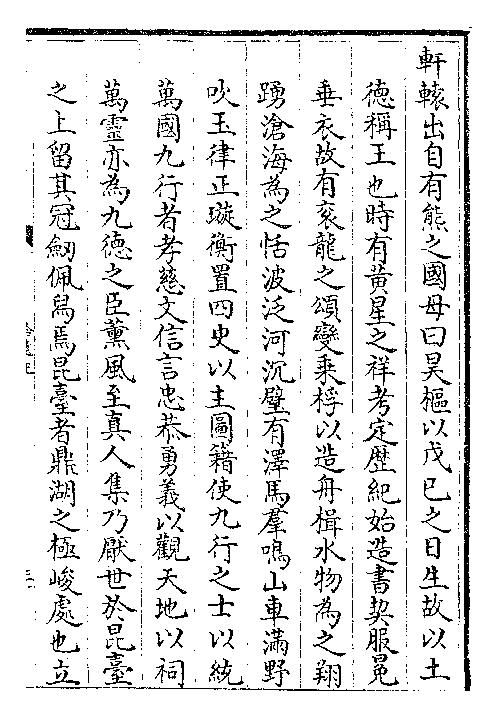 軒轅出自有熊之國母曰昊樞以戊已之日生故以土
德稱王也時有黃星之祥考定歴紀始造書契服冕
垂衣故有衮龍之頌變乗桴以造舟楫水物為之翔
踴滄海為之恬波泛河沉璧有澤馬羣鳴山車滿野
吹玉律正璇衡置四史以主圖籍使九行之士以統
萬國九行者孝慈文信言忠恭勇義以觀天地以祠
萬靈亦為九德之臣薰風至真人集乃厭世於昆臺
之上留其冠劒佩舄焉昆臺者鼎湖之極峻處也立